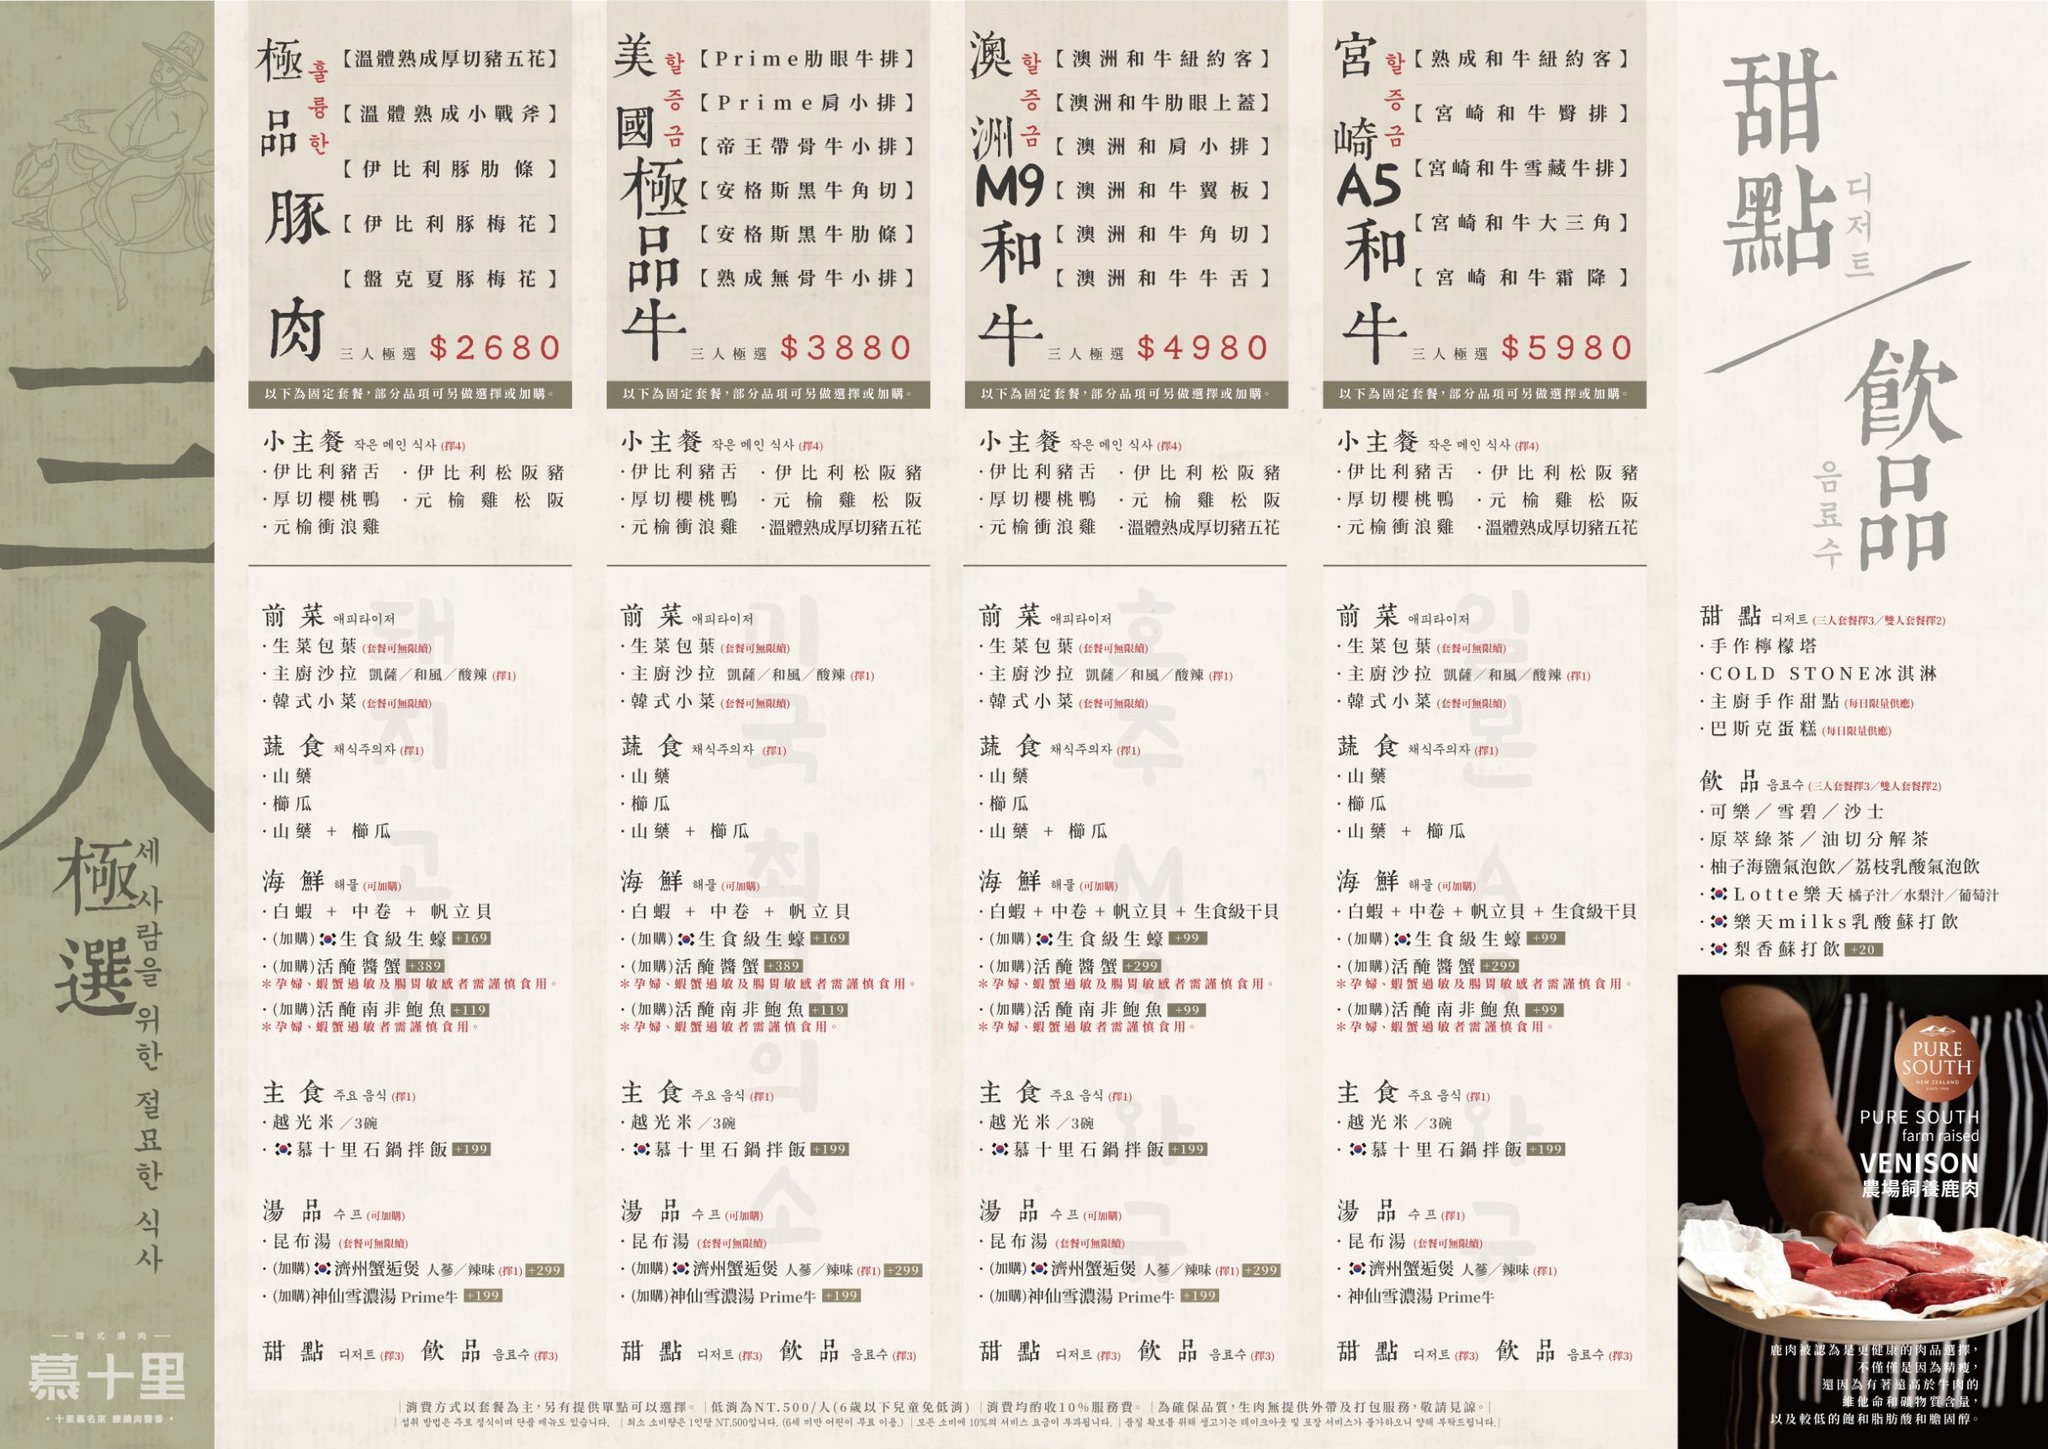 三人
極選
세 사람을 위한 절묘한 식사
韓式燒肉
慕十里
極品豚肉
훌륭한
【溫體熟成厚切豬五花】
【溫體熟成小戰斧】
【伊比利豚肋條】
【伊比利豚梅花】
【盤克夏豚梅花】
三人極選 $2680
以下為固定套餐，部分品項可另做選擇或加購。
小主餐 작은 메인 식사 (擇4)
·伊比利豬舌 ·伊比利松阪豬
·厚切櫻桃鴨 ·元榆雞松阪
·元榆衝浪雞
돼지고
前菜 애피타이저
·生菜包葉 (套餐可無限續)
·主廚沙拉 凱薩／和風／酸辣 (擇1)
·韓式小菜 (套餐可無限續)
蔬食 채식주의자 (擇1)
·山藥
·櫛瓜
·山藥 + 櫛瓜
海鮮 해물 (可加購)
·白蝦 + 中卷 + 帆立貝
·(加購)生食級生蠔 +169
·(加購)活醃醬蟹 +389
＊孕婦、蝦蟹過敏及腸胃敏感者需謹慎食用。
·(加購)活醃南非鮑魚 +119
＊孕婦、蝦蟹過敏者需謹慎食用。
主食 주요 음식 (擇1)
·越光米 ／3碗
·慕十里石鍋拌飯 +199
湯品 수프 (可加購)
·昆布湯 (套餐可無限續)
·(加購)濟州蟹逅煲 人蔘／辣味 (擇1) +299
·(加購)神仙雪濃湯 Prime牛 +199
甜點 디저트 (擇3) 飲品 음료수 (擇3)
美國極品牛
할증금
【Prime肋眼牛排】
【Prime肩小排】
【帝王帶骨牛小排】
【安格斯黑牛角切】
【安格斯黑牛肋條】
【熟成無骨牛小排】
三人極選 $3880
以下為固定套餐，部分品項可另做選擇或加購。
小主餐 작은 메인 식사 (擇4)
·伊比利豬舌 ·伊比利松阪豬
·厚切櫻桃鴨 ·元榆雞松阪
·元榆衝浪雞 ·溫體熟成厚切豬五花
미국 최고의 소
前菜 애피타이저
·生菜包葉 (套餐可無限續)
·主廚沙拉 凱薩／和風／酸辣 (擇1)
·韓式小菜 (套餐可無限續)
蔬食 채식주의자 (擇1)
·山藥
·櫛瓜
·山藥 + 櫛瓜
海鮮 해물 (可加購)
·白蝦 + 中卷 + 帆立貝
·(加購)生食級生蠔 +169
·(加購)活醃醬蟹 +389
＊孕婦、蝦蟹過敏及腸胃敏感者需謹慎食用。
·(加購)活醃南非鮑魚 +119
＊孕婦、蝦蟹過敏者需謹慎食用。
主食 주요 음식 (擇1)
·越光米 ／3碗
·慕十里石鍋拌飯 +199
湯品 수프 (可加購)
·昆布湯 (套餐可無限續)
·(加購)濟州蟹逅煲 人蔘／辣味 (擇1) +299
·(加購)神仙雪濃湯 Prime牛 +199
甜點 디저트 (擇3) 飲品 음료수 (擇3)
澳洲M9和牛
할증금
【澳洲和牛紐約客】
【澳洲和牛肋眼上蓋】
【澳洲和肩小排】
【澳洲和牛翼板】
【澳洲和牛角切】
【澳洲和牛牛舌】
三人極選 $4980
以下為固定套餐，部分品項可另做選擇或加購。
小主餐 작은 메인 식사 (擇4)
·伊比利豬舌 ·伊比利松阪豬
·厚切櫻桃鴨 ·元榆雞松阪
·元榆衝浪雞 ·溫體熟成厚切豬五花
호주 M9 와규
前菜 애피타이저
·生菜包葉 (套餐可無限續)
·主廚沙拉 凱薩／和風／酸辣 (擇1)
·韓式小菜 (套餐可無限續)
蔬食 채식주의자 (擇1)
·山藥
·櫛瓜
·山藥 + 櫛瓜
海鮮 해물 (可加購)
·白蝦 + 中卷 + 帆立貝 + 生食級干貝
·(加購)生食級生蠔 +99
·(加購)活醃醬蟹 +299
＊孕婦、蝦蟹過敏及腸胃敏感者需謹慎食用。
·(加購)活醃南非鮑魚 +99
＊孕婦、蝦蟹過敏者需謹慎食用。
主食 주요 음식 (擇1)
·越光米 ／3碗
·慕十里石鍋拌飯 +199
湯品 수프 (可加購)
·昆布湯 (套餐可無限續)
·(加購)濟州蟹逅煲 人蔘／辣味 (擇1) +299
·(加購)神仙雪濃湯 Prime牛 +199
甜點 디저트 (擇3) 飲品 음료수 (擇3)
宮崎A5和牛
할증금
【熟成和牛紐約客】
【宮崎和牛臀排】
【宮崎和牛雪藏牛排】
【宮崎和牛大三角】
【宮崎和牛霜降】
三人極選 $5980
以下為固定套餐，部分品項可另做選擇或加購。
小主餐 작은 메인 식사 (擇4)
·伊比利豬舌 ·伊比利松阪豬
·厚切櫻桃鴨 ·元榆雞松阪
·元榆衝浪雞 ·溫體熟成厚切豬五花
일본 A5 와규
前菜 애피타이저
·生菜包葉 (套餐可無限續)
·主廚沙拉 凱薩／和風／酸辣 (擇1)
·韓式小菜 (套餐可無限續)
蔬食 채식주의자 (擇1)
·山藥
·櫛瓜
·山藥 + 櫛瓜
海鮮 해물 (可加購)
·白蝦 + 中卷 + 帆立貝 + 生食級干貝
·(加購)生食級生蠔 +99
·(加購)活醃醬蟹 +299
＊孕婦、蝦蟹過敏及腸胃敏感者需謹慎食用。
·(加購)活醃南非鮑魚 +99
＊孕婦、蝦蟹過敏者需謹慎食用。
主食 주요 음식 (擇1)
·越光米 ／3碗
·慕十里石鍋拌飯 +199
湯品 수프 (擇1)
·昆布湯 (套餐可無限續)
·濟州蟹逅煲 人蔘／辣味 (擇1)
·神仙雪濃湯 Prime牛
甜點 디저트 (擇3) 飲品 음료수 (擇3)
甜點 디저트
飲品 음료수
甜點 디저트 (三人套餐擇3／雙人套餐擇2)
·手作檸檬塔
·COLD STONE冰淇淋
·主廚手作甜點 (每日限量供應)
·巴斯克蛋糕 (每日限量供應)
飲品 음료수 (三人套餐擇3／雙人套餐擇2)
·可樂／雪碧／沙士
·原萃綠茶／油切分解茶
·柚子海鹽氣泡飲／荔枝乳酸氣泡飲
·Lotte樂天 橘子汁／水梨汁／葡萄汁
·樂天milks乳酸蘇打飲
·梨香蘇打飲 +20
PURE
SOUTH
NEW ZEALAND
PURE SOUTH
farm raised
VENISON
農場飼養鹿肉
鹿肉被認為是更健康的肉品選擇，
不僅僅是因為精瘦，
還因為有著遠高於牛肉的
維他命和礦物質含量，
以及較低的飽和脂肪酸和膽固醇。
｜消費方式以套餐為主，另有提供單點可以選擇。｜低消為NT.500/人(6歲以下兒童免低消)｜消費均酌收10%服務費。｜為確保品質，生肉無提供外帶及打包服務，敬請見諒。｜
｜섭취 방법은 주로 정식이며 단품 메뉴도 있습니다. ｜최소 소비량은 1인당 NT.500입니다. (6세 미만 어린이 무료 이용.) ｜모든 소비에 10%의 서비스 요금이 부과됩니다. ｜품질 확보를 위해 생고기는 테이크아웃 및 포장 서비스가 불가하오니 양해 부탁드립니다.｜